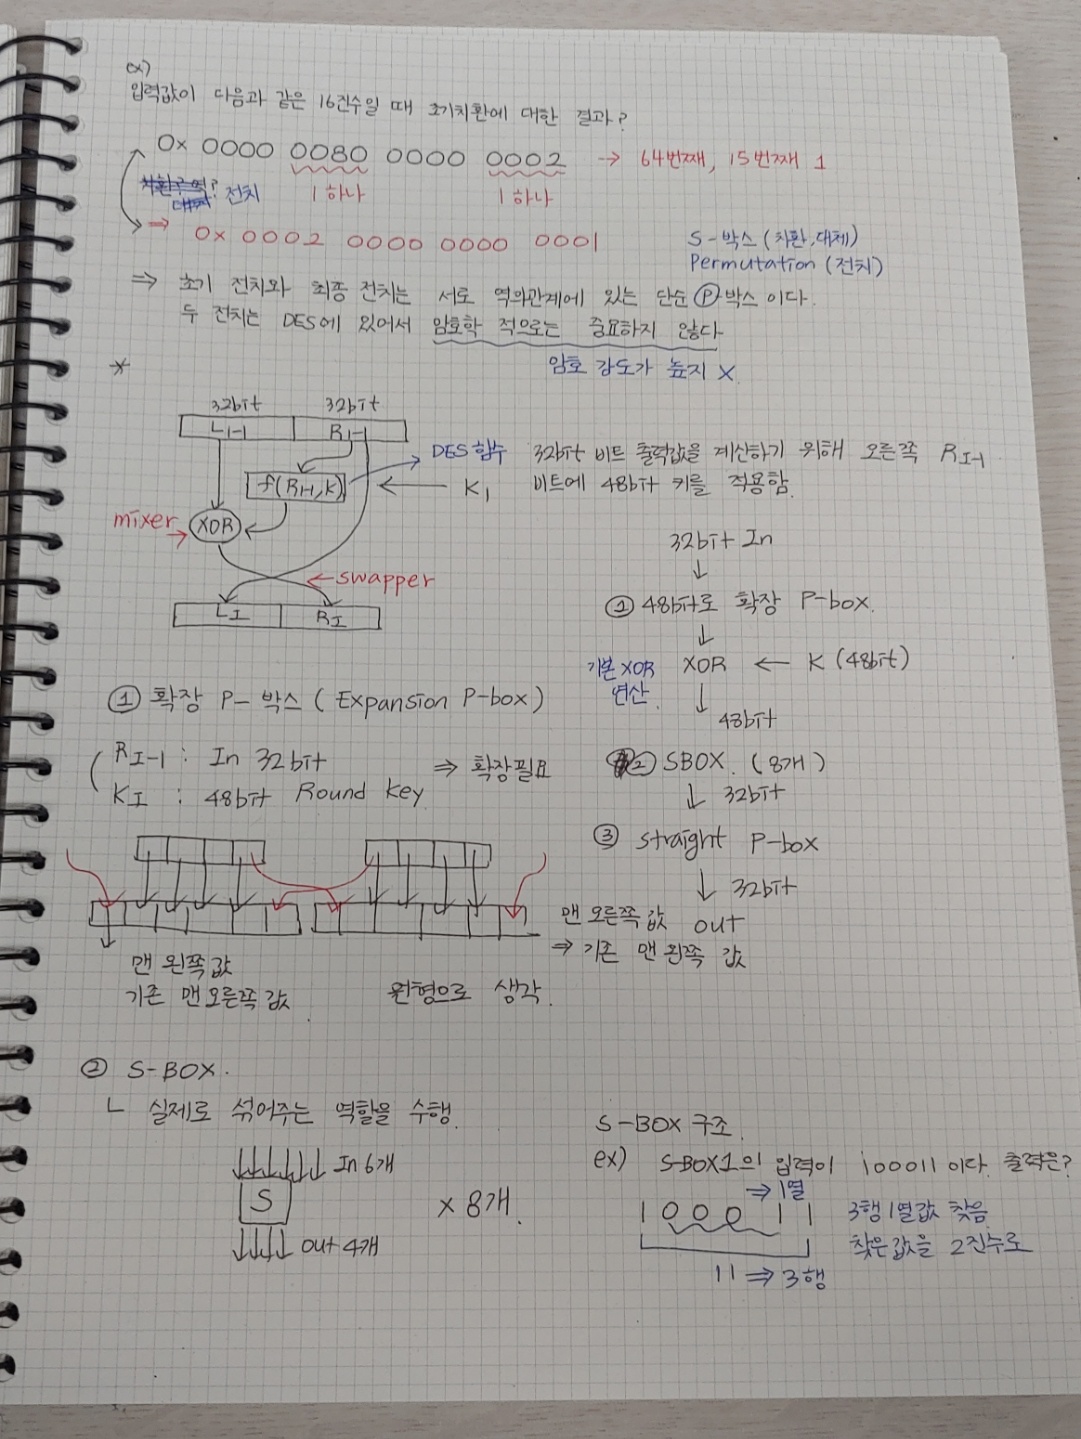 ex)
입력값이 다음과 같은 16진수일 때 초기치환에 대한 결과?
0x 0000 0080 0000 0002 → 64번째, 15번째 1
전치 1하나 1하나
⇒ 0x 0002 0000 0000 0001
S-박스 (치환, 대체)
Permutation (전치)
⇒ 초기 전치와 최종 전치는 서로 역의관계에 있는 단순 Ⓟ-박스 이다.
두 전치는 DES에 있어서 암호학 적으로는 중요하지 않다
암호 강도가 높지 X
*
32bit 32bit
LI-1 RI-1
f(RI-1,K)
DES 함수
K1
32bit 비트 출력값을 계산하기 위해 오른쪽 RI-1
비트에 48bit 키를 적용함.
mixer → XOR
← swapper
LI RI
32bit In
↓
① 48bit로 확장 P-box.
↓
기본 XOR 연산. XOR ← K (48bit)
↓ 48bit
② SBOX. (8개)
↓ 32bit
③ straight P-box
↓ 32bit
out
① 확장 P-박스 (Expansion P-box)
RI-1 : In 32bit ⇒ 확장필요
KI : 48bit Round key
맨 왼쪽값
기존 맨 오른쪽 값.
원형으로 생각.
맨 오른쪽 값
⇒ 기존 맨 왼쪽 값
② S-BOX.
ㄴ 실제로 섞어주는 역할을 수행.
In 6개
S
× 8개.
out 4개
S-BOX 구조.
ex) S-BOX1의 입력이 100011 이다. 출력은?
⇒ 1열
1 0 0 0 1 1
3행 1열값 찾음
찾은값을 2진수로
11 ⇒ 3행